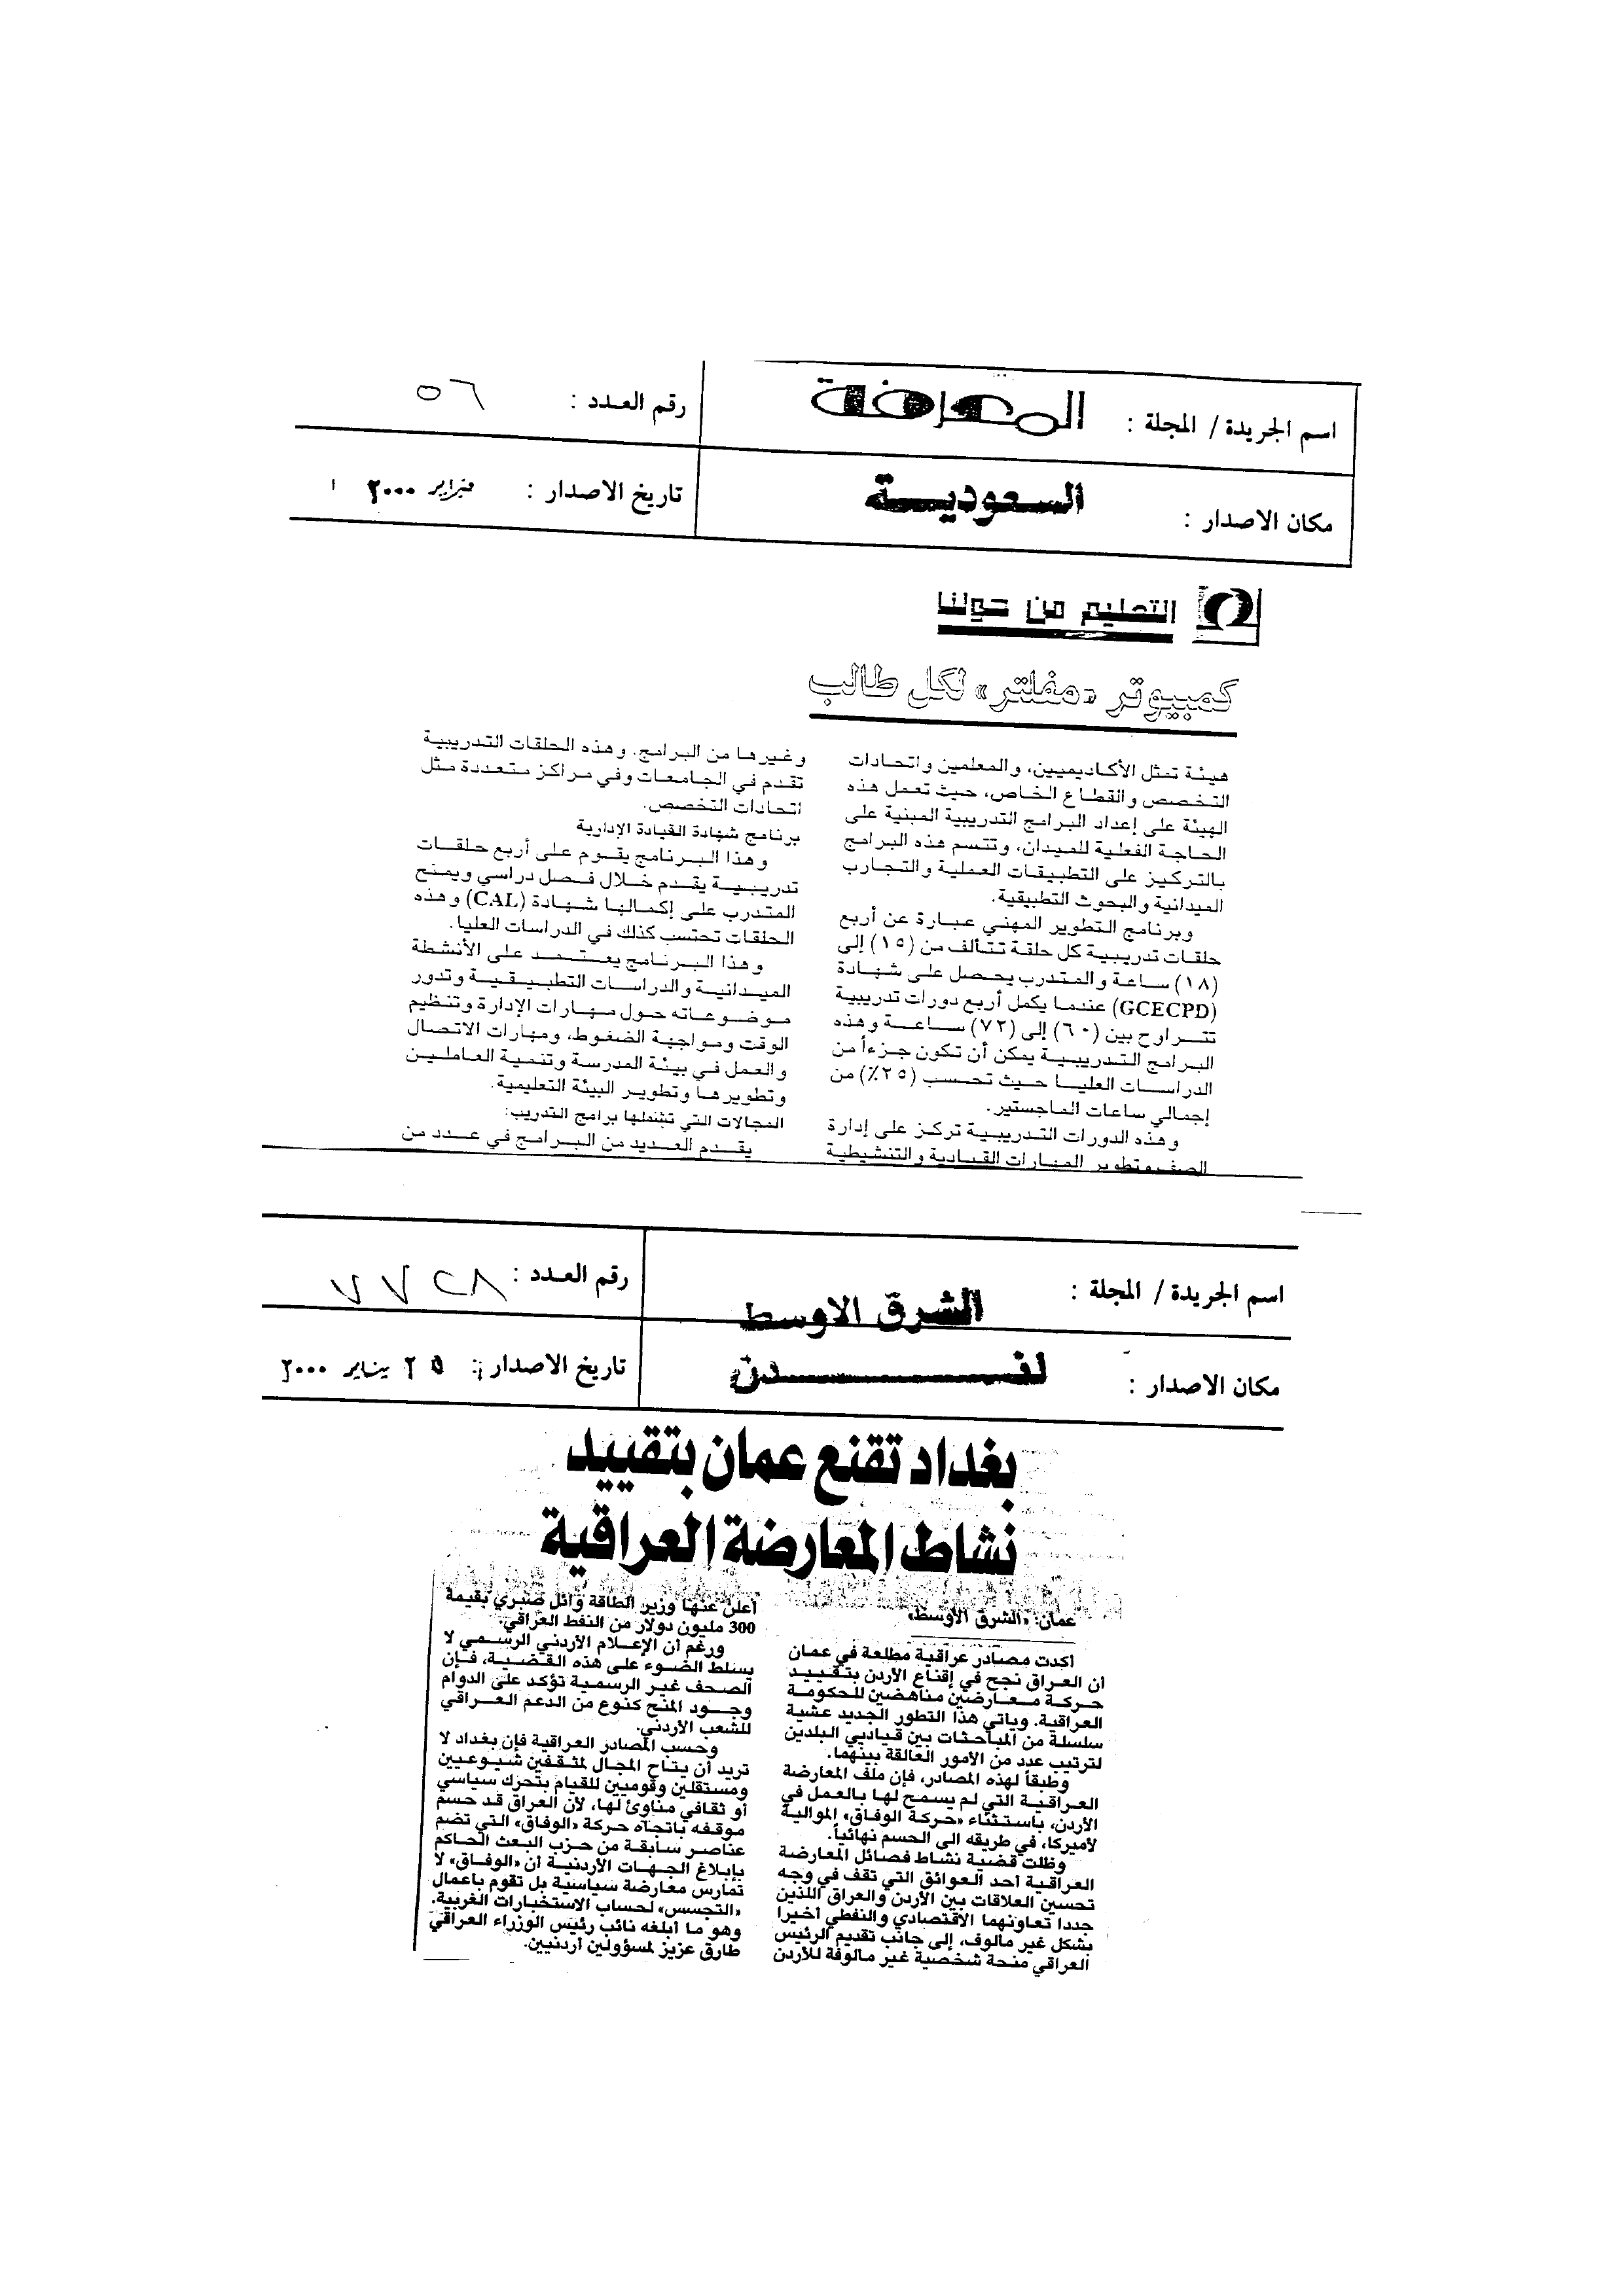 اسم الجريدة / المجلة : المعرفة
رقم العدد : ٥٦
مكان الاصدار : السعودية
تاريخ الاصدار : فبراير ٢٠٠٠
التعليم من حولنا
كمبيوتر «مفلتر» لكل طالب
هيئة تمثل الأكاديميين، والمعلمين واتحادات
التخصص والقطاع الخاص، حيث تعمل هذه
الهيئة على إعداد البرامج التدريبية المبنية على
الحاجة الفعلية للميدان، وتتسم هذه البرامج
بالتركيز على التطبيقات العملية والتجارب
الميدانية والبحوث التطبيقية.
وبرنامج التطوير المهني عبارة عن أربع
حلقات تدريبية كل حلقة تتألف من (١٥) إلى
(١٨) ساعة والمتدرب يحصل على شهادة
(GCECPD) عندما يكمل أربع دورات تدريبية
تتراوح بين (٦٠) إلى (٧٢) ساعة وهذه
البرامج التدريبية يمكن أن تكون جزءاً من
الدراسات العليا حيث تحسب (٢٥٪) من
إجمالي ساعات الماجستير.
وهذه الدورات التدريبية تركز على إدارة
الصف وتطوير المهارات القيادية والتنشيطية
وغيرها من البرامج. وهذه الحلقات التدريبية
تقدم في الجامعات وفي مراكز متعددة مثل
اتحادات التخصص.
برنامج شهادة القيادة الإدارية
وهذا البرنامج يقوم على أربع حلقات
تدريبية يقدم خلال فصل دراسي ويمنح
المتدرب على إكمالها شهادة (CAL) وهذه
الحلقات تحتسب كذلك في الدراسات العليا.
وهذا البرنامج يعتمد على الأنشطة
الميدانية والدراسات التطبيقية وتدور
موضوعاته حول مهارات الإدارة وتنظيم
الوقت ومواجهة الضغوط، ومهارات الاتصال
والعمل في بيئة المدرسة وتنمية العاملين
وتطويرها وتطوير البيئة التعليمية.
المجالات التي تشملها برامج التدريب:
يقدم العديد من البرامج في عدد من
اسم الجريدة / المجلة : الشرق الاوسط
رقم العدد : ٧٧٢٨
مكان الاصدار : لندن
تاريخ الاصدار : ٢٥ يناير ٢٠٠٠
بغداد تقنع عمان بتقييد
نشاط المعارضة العراقية
عمان: «الشرق الأوسط»
أكدت مصادر عراقية مطلعة في عمان
أن العراق نجح في إقناع الأردن بتقييد
حركة معارضين مناهضين للحكومة
العراقية. ويأتي هذا التطور الجديد عشية
سلسلة من المباحثات بين قياديي البلدين
لترتيب عدد من الأمور العالقة بينهما.
وطبقاً لهذه المصادر، فإن ملف المعارضة
العراقية التي لم يسمح لها بالعمل في
الأردن، باستثناء «حركة الوفاق» الموالية
لأميركا، في طريقه الى الحسم نهائياً.
وظلت قضية نشاط فصائل المعارضة
العراقية أحد العوائق التي تقف في وجه
تحسين العلاقات بين الأردن والعراق اللذين
جددا تعاونهما الاقتصادي والنفطي أخيرا
بشكل غير مألوف، إلى جانب تقديم الرئيس
العراقي منحة شخصية غير مألوفة للأردن
أعلن عنها وزير الطاقة وائل صبري بقيمة
300 مليون دولار من النفط العراقي.
ورغم أن الإعلام الأردني الرسمي لا
يسلط الضوء على هذه القضية، فإن
الصحف غير الرسمية تؤكد على الدوام
وجود المنح كنوع من الدعم العراقي
للشعب الأردني.
وحسب المصادر العراقية فإن بغداد لا
تريد أن يتاح المجال لمثقفين شيوعيين
ومستقلين وقوميين للقيام بتحرك سياسي
أو ثقافي مناوئ لها، لأن العراق قد حسم
موقفه باتجاه حركة «الوفاق» التي تضم
عناصر سابقة من حزب البعث الحاكم
بإبلاغ الجهات الأردنية أن «الوفاق» لا
تمارس معارضة سياسية بل تقوم بأعمال
«التجسس» لحساب الاستخبارات الغربية.
وهو ما أبلغه نائب رئيس الوزراء العراقي
طارق عزيز لمسؤولين أردنيين.